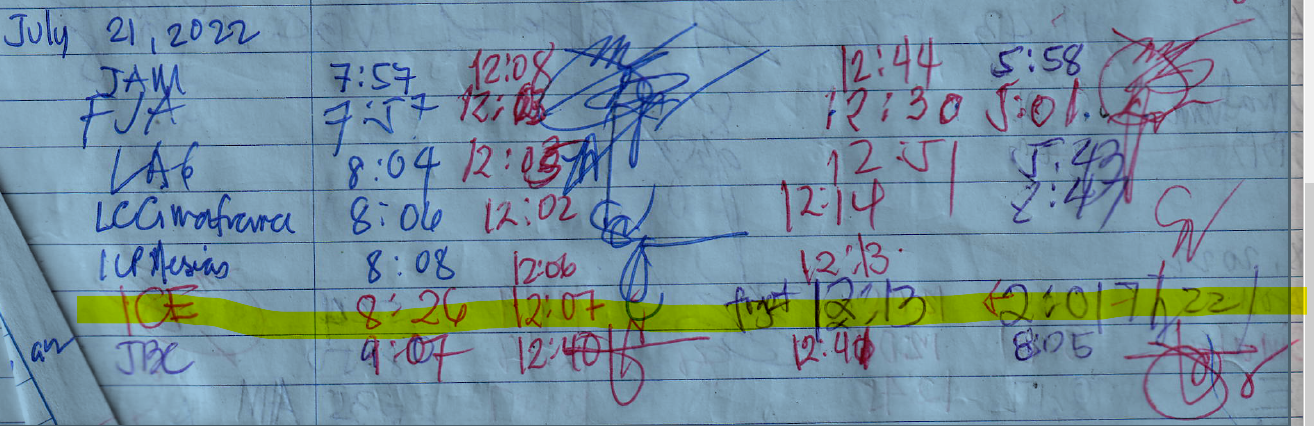 July 21, 2022
JAM 7:57 12:08 12:44 5:58
FJA 7:57 12:03 12:30 5:01
LAG 8:04 12:03 12:51 5:43
8:06 12:02 12:14 2:47
8:08 12:06 12:13
ICE 8:26 12:07 12:13 2:01
JBC 9:07 12:40 12:41 8:05
an